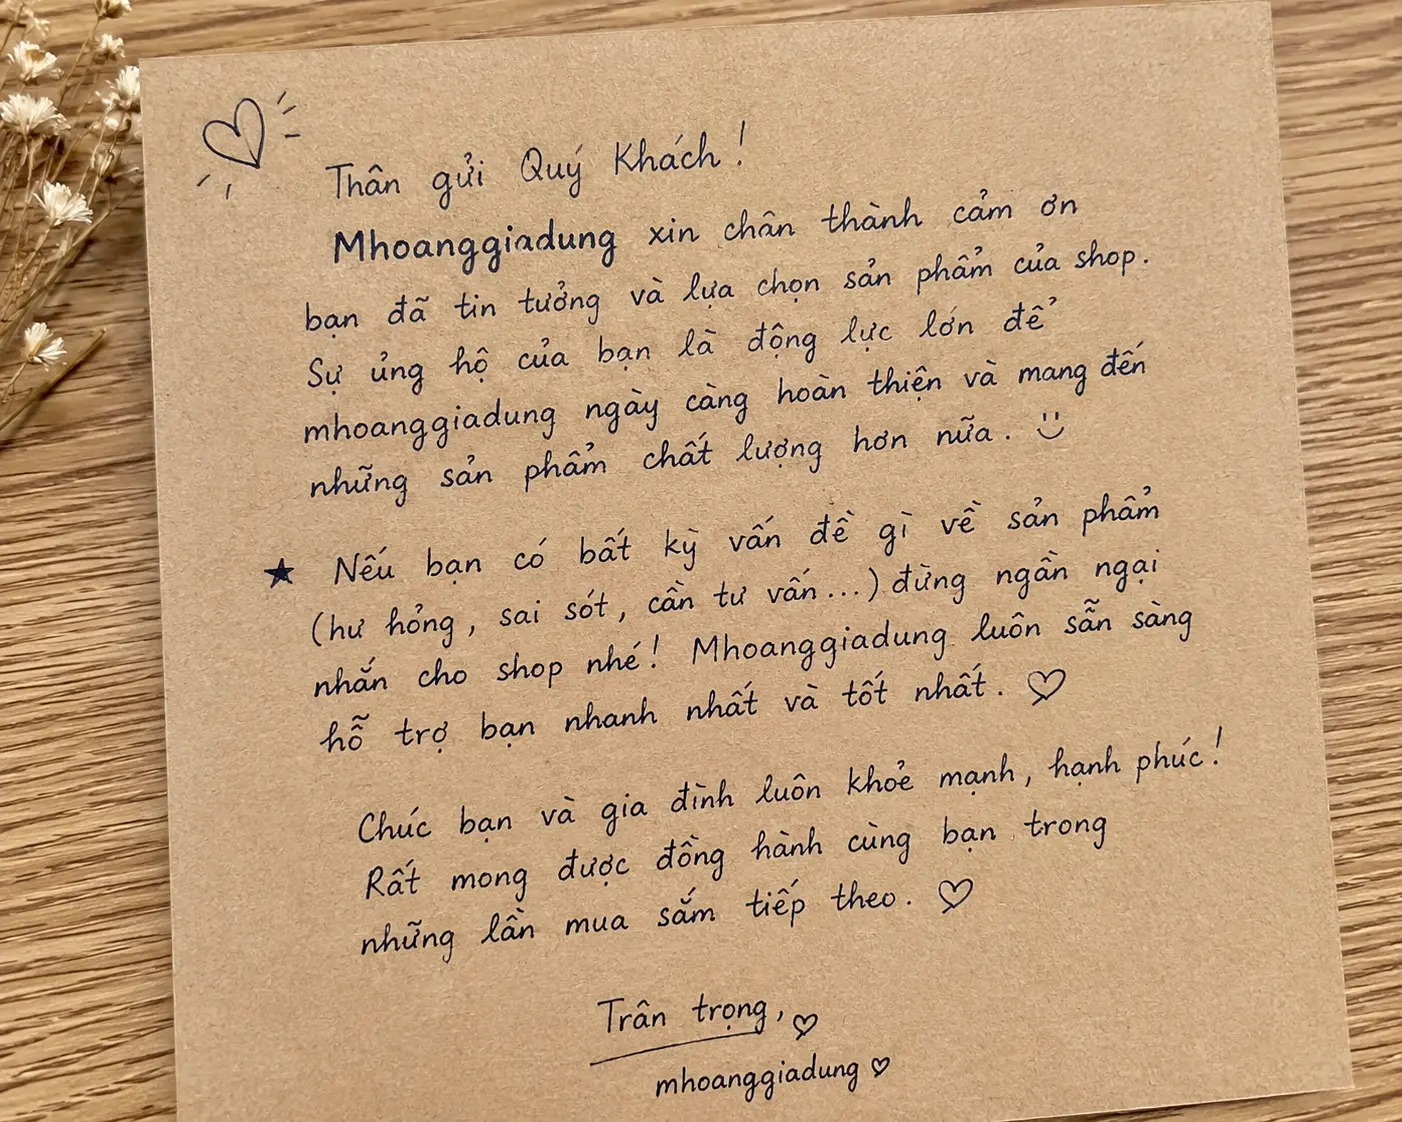 Thân gửi Quý Khách !
Mhoanggiadung xin chân thành cảm ơn
bạn đã tin tưởng và lựa chọn sản phẩm của shop.
Sự ủng hộ của bạn là động lực lớn để
mhoanggiadung ngày càng hoàn thiện và mang đến
những sản phẩm chất lượng hơn nữa.
★ Nếu bạn có bất kỳ vấn đề gì về sản phẩm
(hư hỏng, sai sót, cần tư vấn...) đừng ngần ngại
nhắn cho shop nhé! Mhoanggiadung luôn sẵn sàng
hỗ trợ bạn nhanh nhất và tốt nhất. ♡
Chúc bạn và gia đình luôn khoẻ mạnh, hạnh phúc!
Rất mong được đồng hành cùng bạn trong
những lần mua sắm tiếp theo. ♡
Trân trọng, ♡
mhoanggiadung ♡